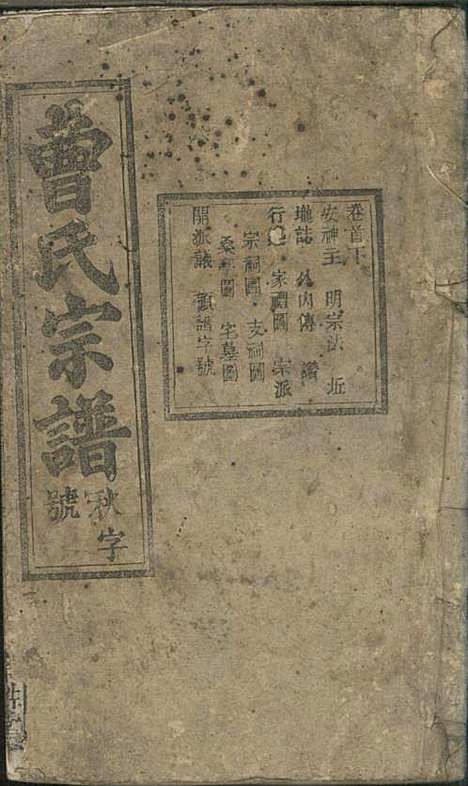 曹氏宗譜
秋字號
卷首下
安神主 明宗法 坵
壠誌 外內傳 譜
行 家禮圖 宗派
宗祠圖 支祠圖
基圖 宅墓圖
開派議 領譜字號